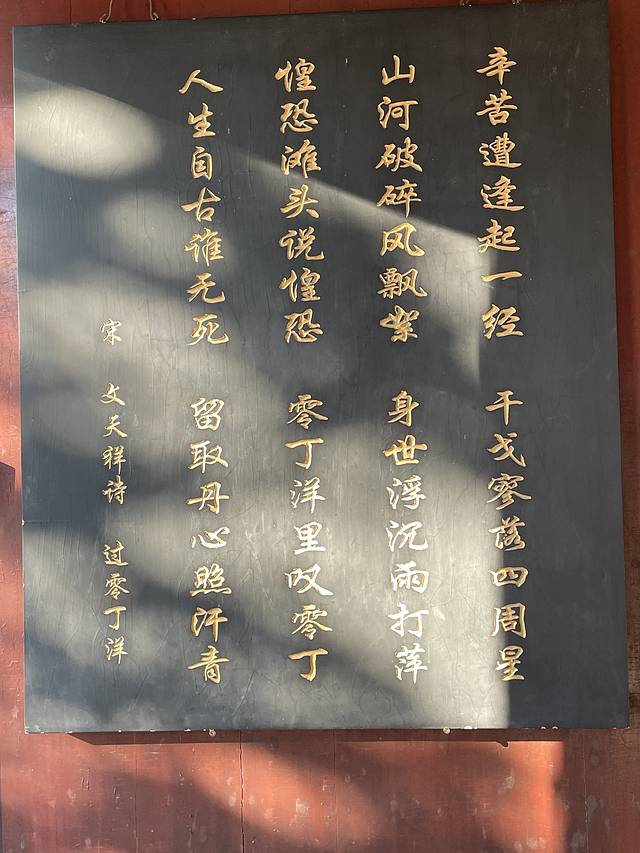 辛苦遭逢起一经 干戈寥落四周星
山河破碎风飘絮 身世浮沉雨打萍
惶恐滩头说惶恐 零丁洋里叹零丁
人生自古谁无死 留取丹心照汗青
宋 文天祥诗 过零丁洋